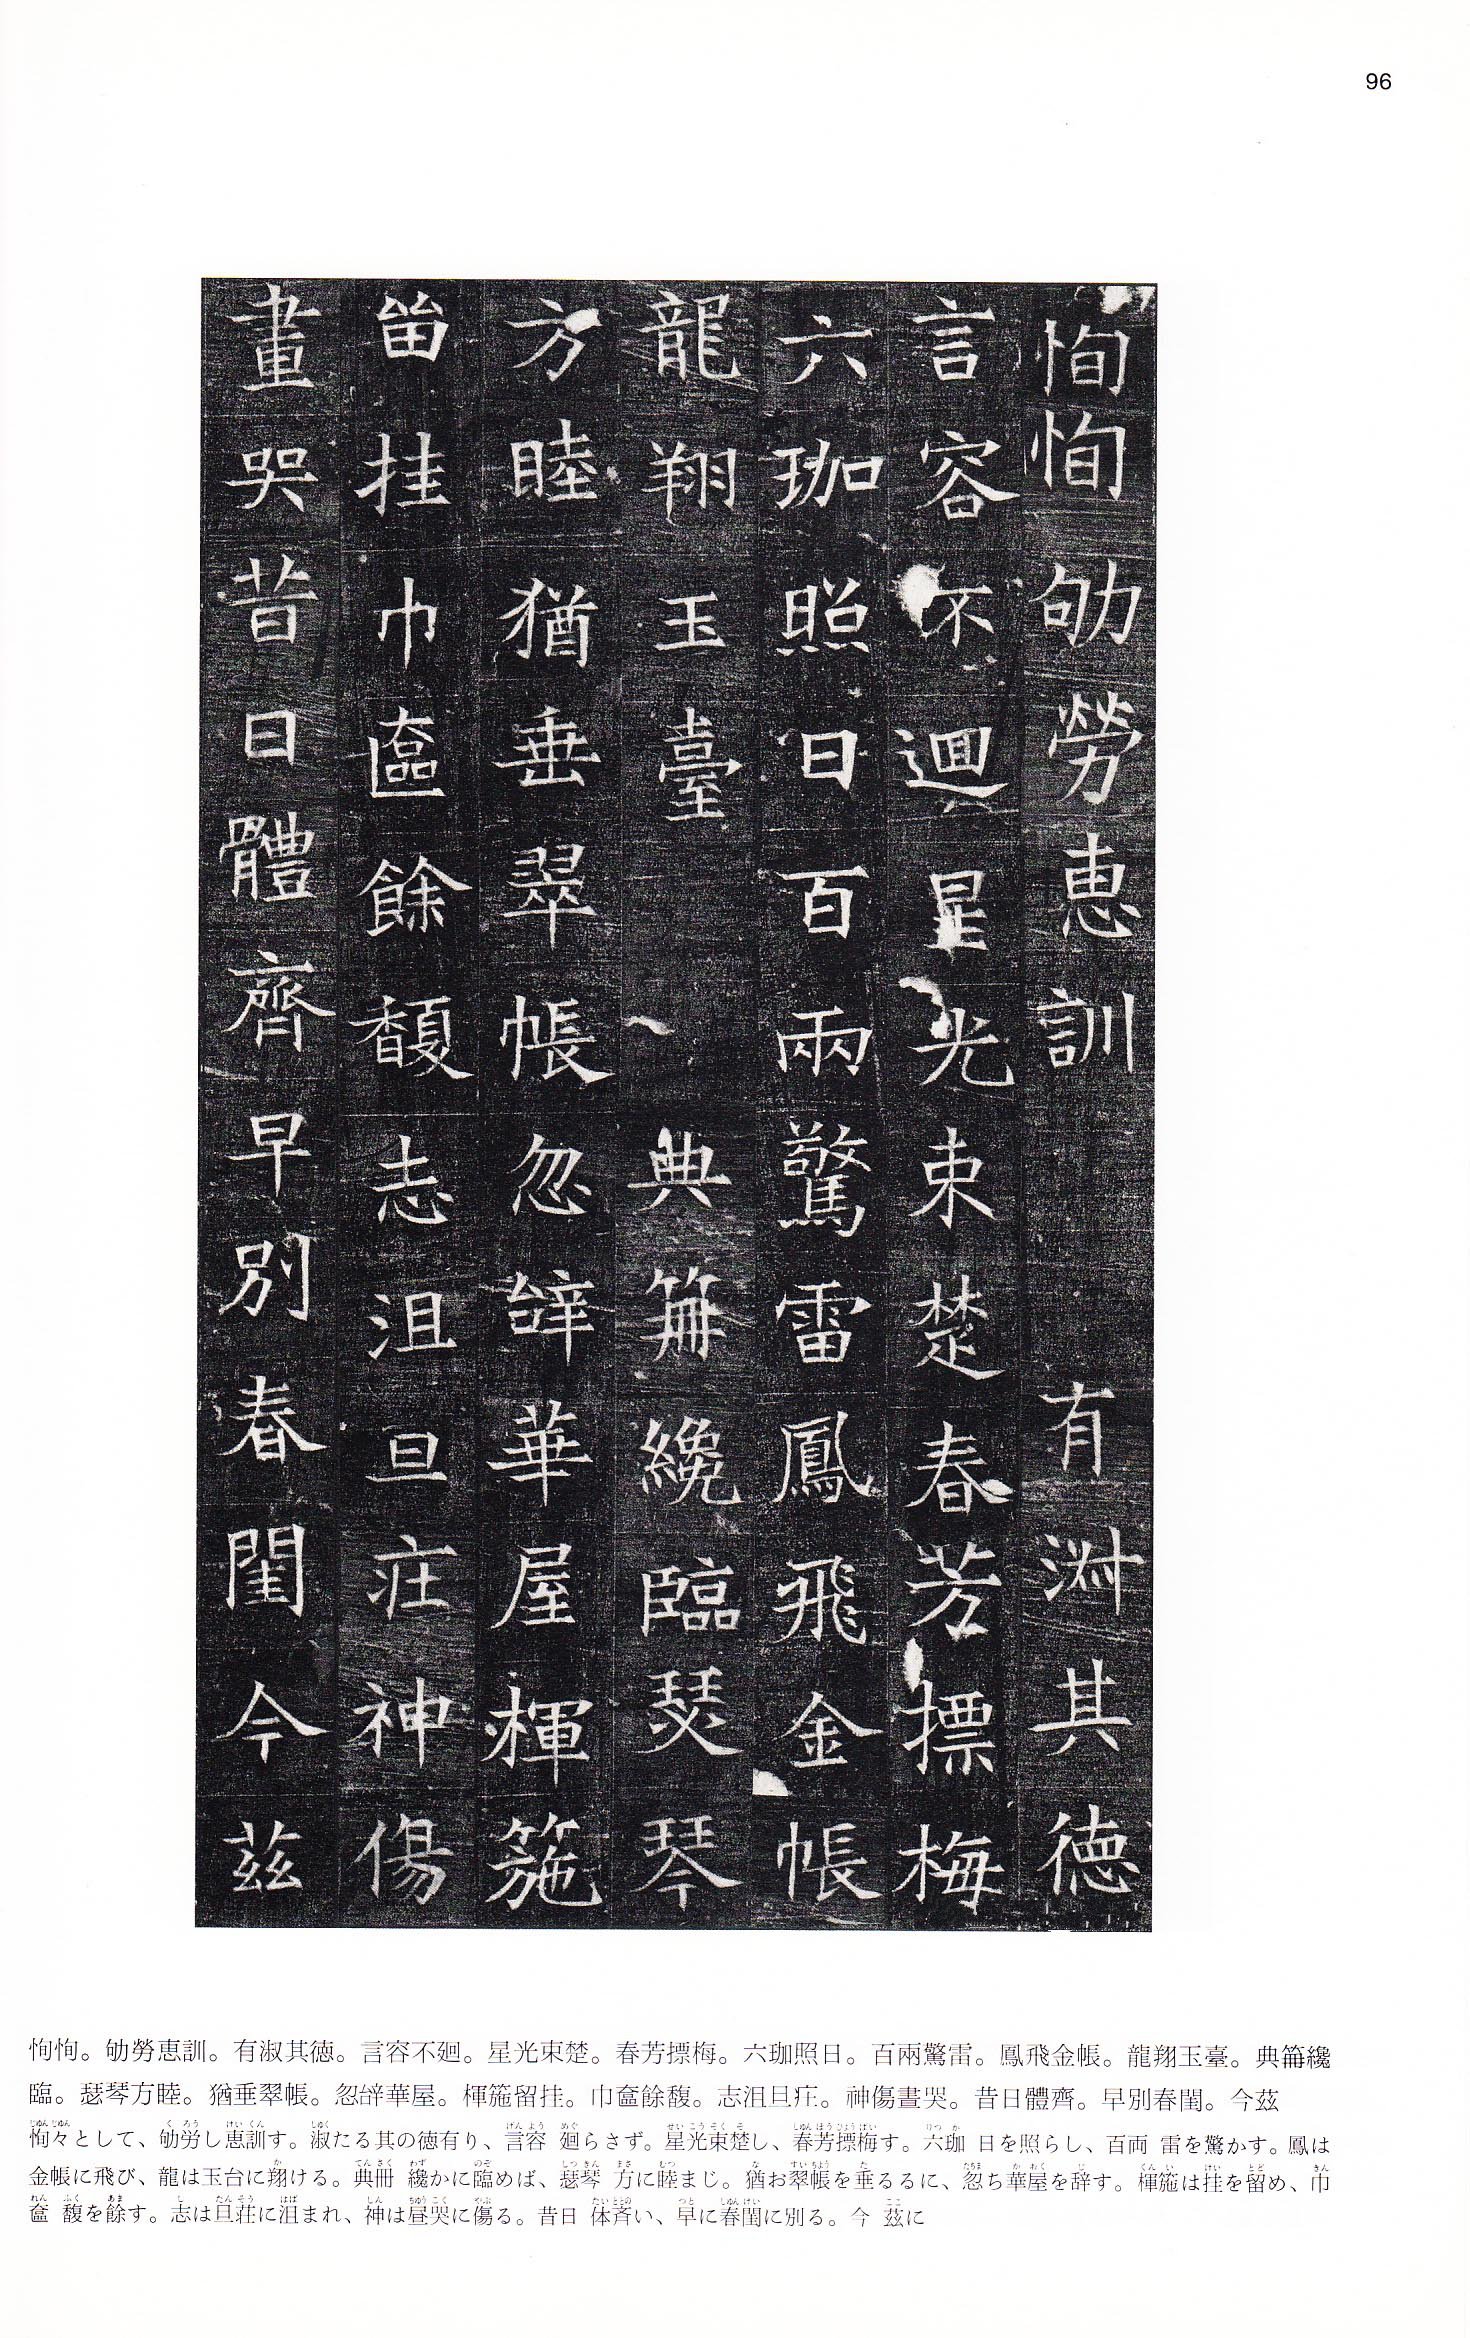 96
恂恂劬勞惠訓有淑其德
言容不迴星光束楚春芳摽梅
六珈照日百兩驚雷鳳飛金帳
龍翔玉臺典箳纔臨瑟琴
方睦猶垂翠帳忽辝華屋楎箷
留挂巾奩餘馥志沮旦疘神傷
晝哭昔日體齊早別春閨今茲
恂恂。劬勞恵訓。有淑其徳。言容不廻。星光束楚。春芳摽梅。六珈照日。百兩驚雷。鳳飛金帳。龍翔玉臺。典箳纔
臨。瑟琴方睦。猶垂翠帳。忽辝華屋。楎箷留挂。巾奩餘馥。志沮旦疘。神傷晝哭。昔日體齊。早別春閨。今茲
恂々として、劬労し恵訓す。淑たる其の徳有り、言容 廻らさず。星光束楚し、春芳摽梅す。六珈 日を照らし、百両 雷を驚かす。鳳は
金帳に飛び、龍は玉台に翔ける。典冊 纔かに臨めば、瑟琴 方に睦まじ。猶お翠帳を垂るるに、忽ち華屋を辞す。楎箷は挂を留め、巾
奩 馥を餘す。志は旦荘に沮まれ、神は昼哭に傷る。昔日 体斉い、早に春閨に別る。今 茲に